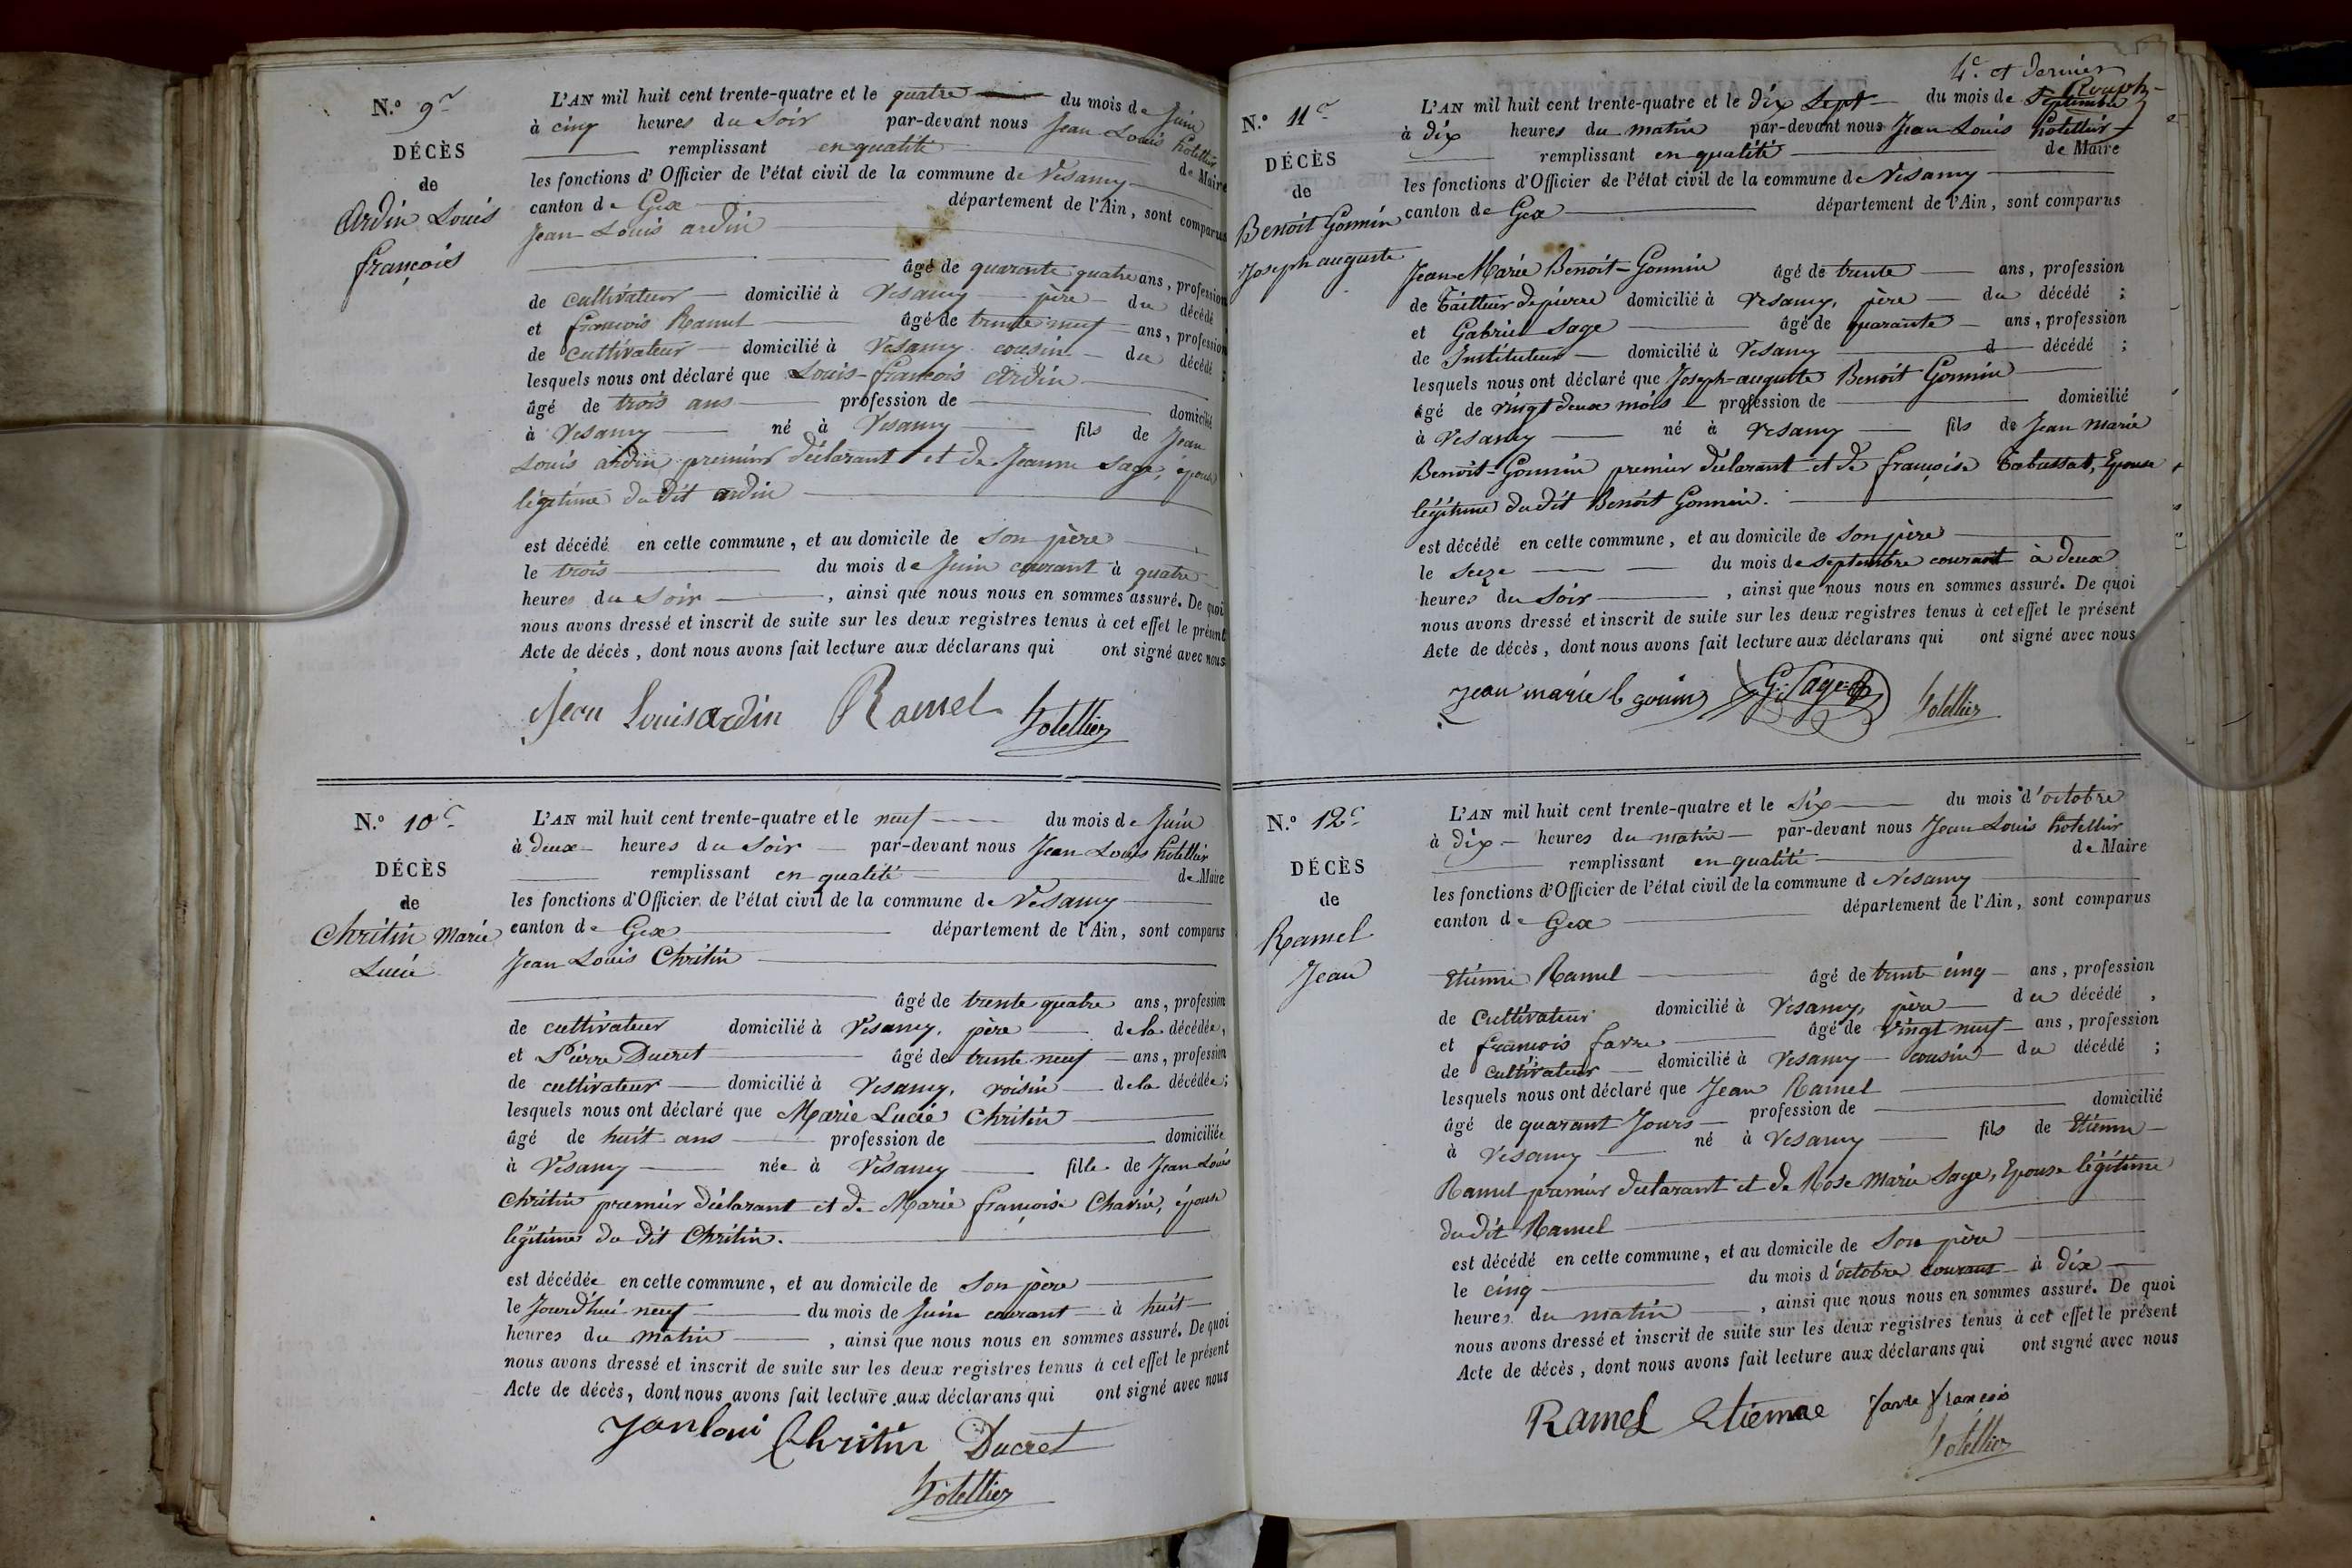 N.º 9e
DÉCÈS
de
Ardin Louis
françois
L'AN mil huit cent trente-quatre et le quatre du mois de Juin
à cinq heures du Soir par-devant nous Jean Louis hotellier
remplissant en qualité de Maire
les fonctions d'Officier de l'état civil de la commune de Vesancy
canton de Gex département de l'Ain, sont comparus
Jean Louis ardin
âgé de quarante quatre ans, profession
de cultivateur domicilié à Vesancy père du décédé
et françois Ramel âgé de trente neuf ans, profession
de cultivateur domicilié à Vesancy cousin du décédé ;
lesquels nous ont déclaré que Louis-françois Ardin
âgé de trois ans profession de domicilié
à Vesancy né à Vesancy fils de Jean
Louis ardin premier déclarant et de Jeanne Sage, épouse
légitime du dit ardin
est décédé en cette commune, et au domicile de son père
le trois du mois de Juin courant à quatre
heures du Soir , ainsi que nous nous en sommes assuré. De quoi
nous avons dressé et inscrit de suite sur les deux registres tenus à cet effet le présent
Acte de décès, dont nous avons fait lecture aux déclarans qui ont signé avec nous
Jean Louis ardin Ramel hotellier
N.º 10e
DÉCÈS
de
Chritin Marie
Lucie
L'AN mil huit cent trente-quatre et le neuf du mois de Juin
à deux heures du Soir par-devant nous Jean Louis hotellier
remplissant en qualité de Maire
les fonctions d'Officier de l'état civil de la commune de Vesancy
canton de Gex département de l'Ain, sont comparus
Jean Louis Chritin
âgé de trente quatre ans, profession
de cultivateur domicilié à Vesancy, père de la décédée,
et Pierre Ducret âgé de trente neuf ans, profession
de cultivateur domicilié à Vesancy, voisin de la décédée;
lesquels nous ont déclaré que Marie Lucie Chritin
âgé de huit ans profession de domiciliée
à Vesancy née à Vesancy fille de Jean Louis
Chritin premier déclarant et de Marie françoise Charrie, épouse
légitime du dit Chritin.
est décédée en cette commune, et au domicile de son père
le Jourd'hui neuf du mois de Juin courant à huit
heures du matin , ainsi que nous nous en sommes assuré. De quoi
nous avons dressé et inscrit de suite sur les deux registres tenus à cet effet le présent
Acte de décès, dont nous avons fait lecture aux déclarans qui ont signé avec nous
Jan loui Chritin Ducret
hotellier
4e et dernier
N.º 11e
DÉCÈS
de
Benoit Gonnin
Joseph auguste
L'AN mil huit cent trente-quatre et le dix Sept du mois de Septembre
à dix heures du matin par-devant nous Jean Louis hotellier
remplissant en qualité de Maire
les fonctions d'Officier de l'état civil de la commune de Vesancy
canton de Gex département de l'Ain, sont comparus
Jean-Marie Benoit-Gonnin âgé de trente ans, profession
de Tailleur de pierre domicilié à Vesancy, père du décédé ;
et Gabriel Sage âgé de quarante ans, profession
de Instituteur domicilié à Vesancy d décédé ;
lesquels nous ont déclaré que Joseph-auguste Benoit Gonnin
âgé de vingt deux mois profession de domicilié
à Vesancy né à Vesancy fils de Jean Marie
Benoit-Gonnin premier déclarant et de françoise Tabussat, Epouse
légitime du dit Benoit Gonnin.
est décédé en cette commune, et au domicile de Son père
le Seize du mois de Septembre courant à deux
heures du Soir , ainsi que nous nous en sommes assuré. De quoi
nous avons dressé et inscrit de suite sur les deux registres tenus à cet effet le présent
Acte de décès, dont nous avons fait lecture aux déclarans qui ont signé avec nous
jean marie b gonin G. Sage hotellier
N.º 12e
DÉCÈS
de
Ramel
Jean
L'AN mil huit cent trente-quatre et le Six du mois d'octobre
à dix heures du matin par-devant nous Jean Louis hotellier
remplissant en qualité de Maire
les fonctions d'Officier de l'état civil de la commune d Vesancy
canton de Gex département de l'Ain, sont comparus
Etienne Ramel âgé de trente cinq ans, profession
de Cultivateur domicilié à Vesancy, père du décédé ,
et françois favre âgé de vingt neuf ans, profession
de cultivateur domicilié à Vesancy cousin du décédé ;
lesquels nous ont déclaré que Jean Ramel
âgé de quarant Jours profession de domicilié
à Vesancy né à Vesancy fils de Etienne
Ramel premier déclarant et de Rose Marie Sage, Epouse légitime
du dit Ramel
est décédé en cette commune, et au domicile de Son père
le cinq du mois d'octobre courant à dix
heures du matin , ainsi que nous nous en sommes assuré. De quoi
nous avons dressé et inscrit de suite sur les deux registres tenus à cet effet le présent
Acte de décès, dont nous avons fait lecture aux déclarans qui ont signé avec nous
Ramel Etienne favre françois
hotellier